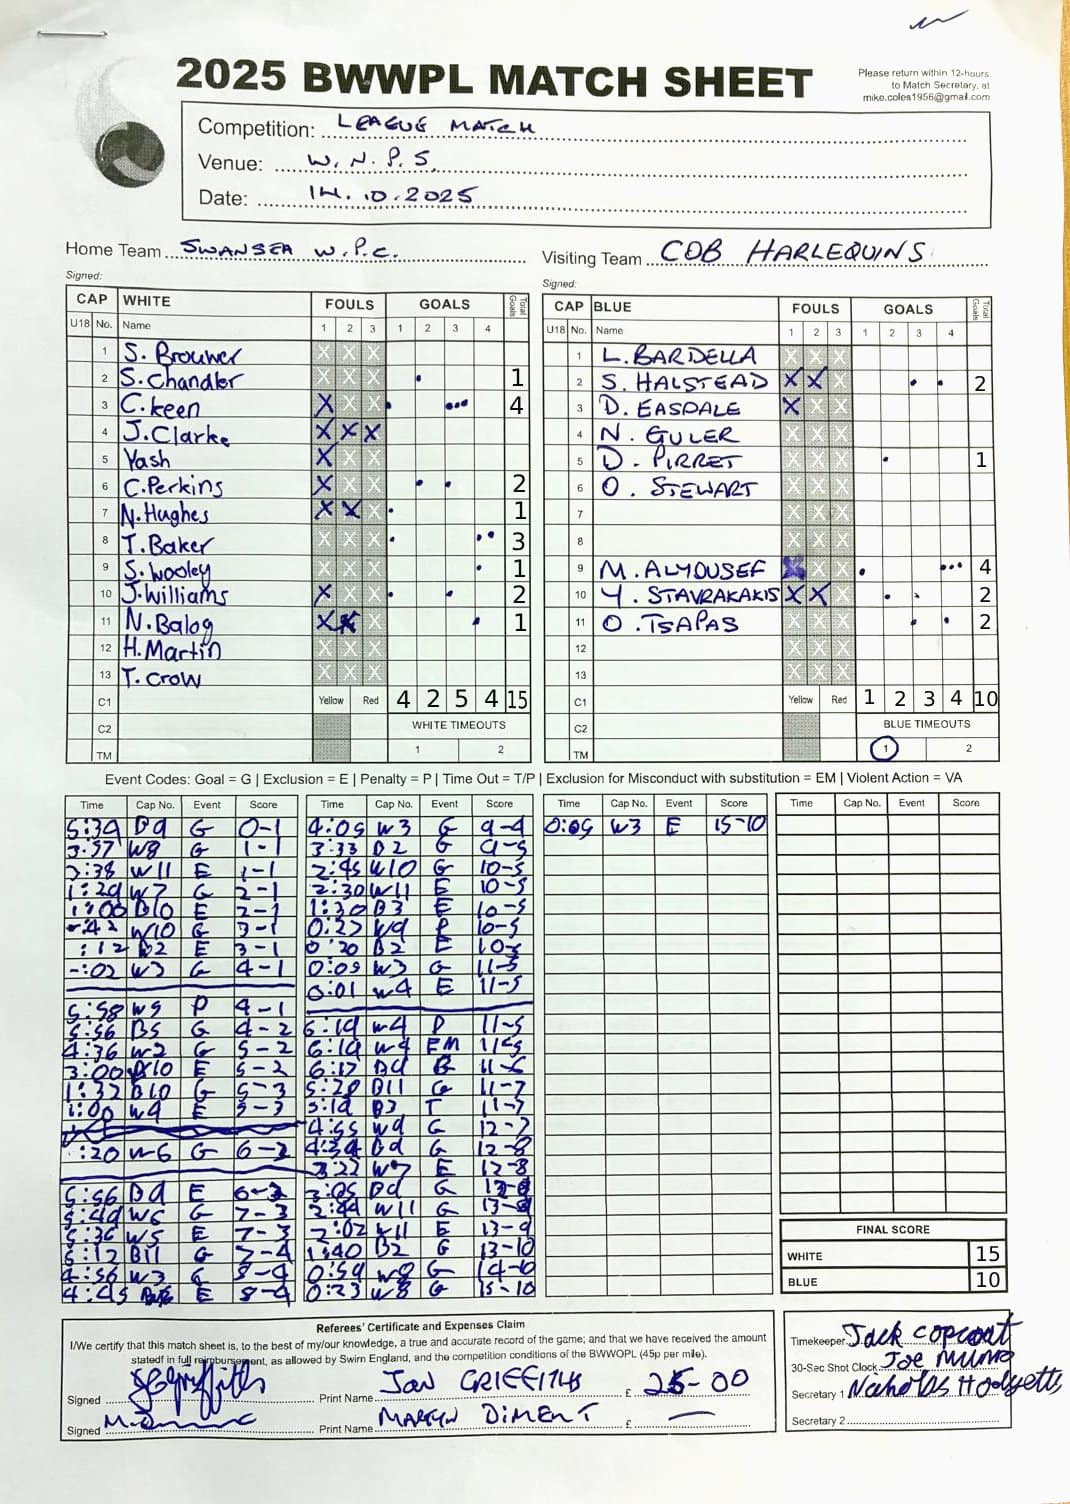 2025 BWWPL MATCH SHEET
Please return within 12-hours
to Match Secretary, at
mike.coles1956@gmail.com
Competition: LEAGUE MATCH
Venue: W.N.P.S.
Date: 14.10.2025
Home Team SWANSEA W.P.C.
Visiting Team COB HARLEQUINS
Signed:
Signed:
CAP WHITE FOULS GOALS Total Goals
U18 No. Name 1 2 3 1 2 3 4
1 S. Brouwer X X X
2 S. Chandler X X X 1
3 C. Keen X X X 4
4 J. Clarke X X X
5 Yash X X X
6 C. Perkins X X X 2
7 N. Hughes X X X 1
8 T. Baker X X X 3
9 S. Wooley X X X 1
10 J. Williams X X X 2
11 N. Balog X X X 1
12 H. Martin X X X
13 T. Crow X X X
C1 Yellow Red 4 2 5 4 15
C2 WHITE TIMEOUTS
TM 1 2
CAP BLUE FOULS GOALS Total Goals
U18 No. Name 1 2 3 1 2 3 4
1 L. BARDELLA X X X
2 S. HALSTEAD X X X 2
3 D. EASDALE X X X
4 N. GULER X X X
5 D. PIRRET X X X 1
6 O. STEWART X X X
7 X X X
8 X X X
9 M. ALYOUSEF X X X 4
10 Y. STAVRAKAKIS X X X 2
11 O. TSAPAS X X X 2
12 X X X
13 X X X
C1 Yellow Red 1 2 3 4 10
C2 BLUE TIMEOUTS
TM 1 2
Event Codes: Goal = G | Exclusion = E | Penalty = P | Time Out = T/P | Exclusion for Misconduct with substitution = EM | Violent Action = VA
Time Cap No. Event Score
5:39 B9 G 0-1
3:37 W8 G 1-1
2:38 W11 E 1-1
1:29 W7 G 2-1
1:00 B10 E 2-1
:42 W10 G 3-1
:12 B2 E 3-1
:02 W3 G 4-1
5:58 W5 P 4-1
5:56 B5 G 4-2
4:36 W2 G 5-2
3:00 E 5-2
1:32 B10 G 5-3
1:00 W4 E 5-3
:20 W6 G 6-3
5:56 B9 E 6-3
5:49 W6 G 7-3
5:36 W5 E 7-3
5:12 B11 G 7-4
4:56 W3 G 8-4
4:45 E 8-4
Time Cap No. Event Score
4:05 W3 G 9-4
3:33 B2 G 9-5
2:45 W10 G 10-5
2:30 W11 E 10-5
1:30 B3 E 10-5
0:27 P 10-5
0:20 B2 E 10-5
0:09 W3 G 11-5
0:01 W4 E 11-5
6:19 W4 P 11-5
6:19 W4 EM 11-5
6:17 B9 G 11-6
5:28 B11 G 11-7
5:19 B3 T 11-7
4:55 W9 G 12-7
4:34 B9 G 12-8
3:22 W7 E 12-8
3:05 B9 G
2:44 W11 G 13-9
2:02 E 13-9
1:40 B2 G 13-10
0:59 W8 G 14-10
0:23 W8 G 15-10
Time Cap No. Event Score
0:05 W3 E 15-10
Time Cap No. Event Score
FINAL SCORE
WHITE 15
BLUE 10
Referees' Certificate and Expenses Claim
I/We certify that this match sheet is, to the best of my/our knowledge, a true and accurate record of the game; and that we have received the amount
statedf in full reimbursement, as allowed by Swim England, and the competition conditions of the BWWOPL (45p per mile).
Signed Print Name JON GRIFFITHS £ 25-00
Signed Print Name MARTYN DIMENT £ —
Timekeeper Jack Copcoat
30-Sec Shot Clock Joe Munro
Secretary 1 Nicholas Hodgetts
Secretary 2